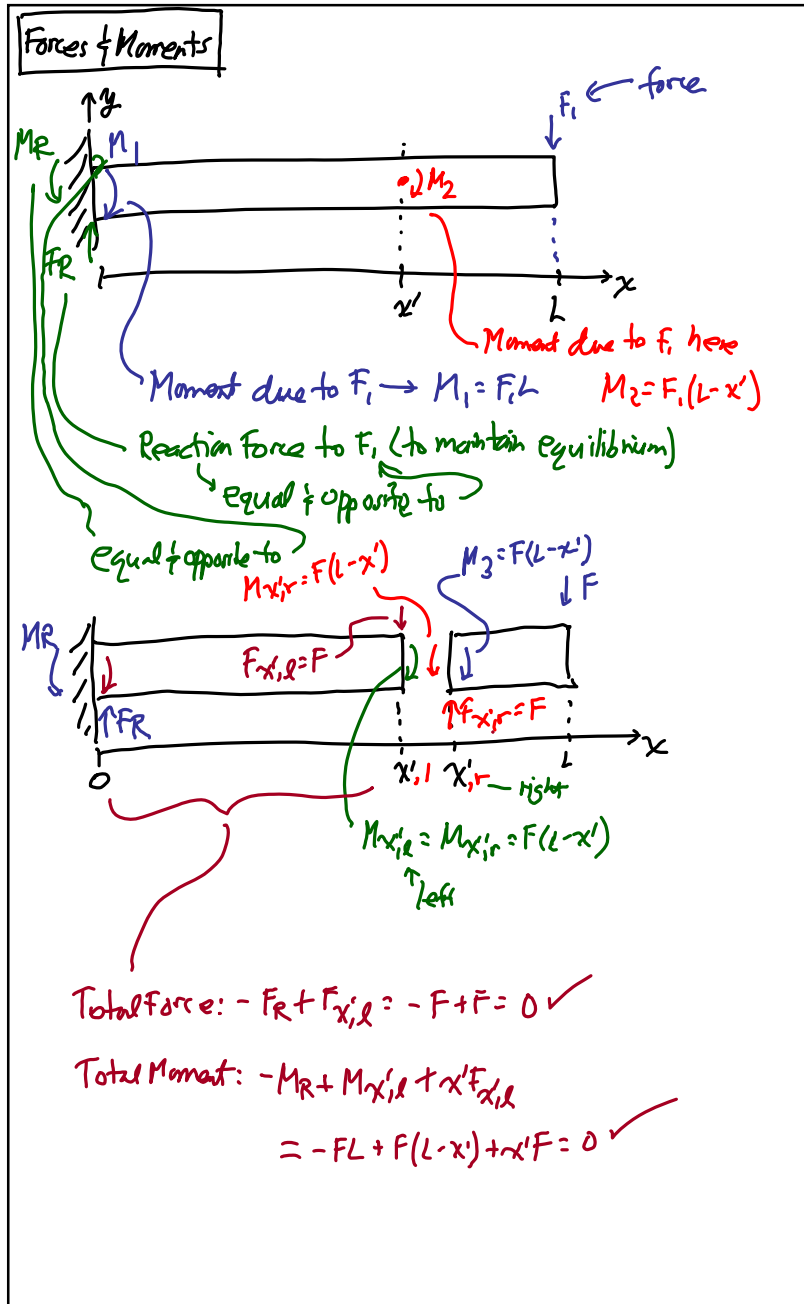 Forces & Moments
y
F₁ ← force
M_R
M₁
M₂
F_R
x
x'
L
Moment due to F₁ here
Moment due to F₁ → M₁ = F₁L
M₂ = F₁(L-x')
Reaction Force to F₁ (to maintain equilibrium)
equal & opposite to
equal & opposite to
M_x',r = F(L-x')
M₃ = F(L-x')
F
M_R
F_x',l = F
F_R
F_x',r = F
x
0
x',l
x',r
right
L
M_x',l = M_x',r = F(L-x')
left
Total Force: - F_R + F_x',l = - F + F = 0 ✓
Total Moment: - M_R + M_x',l + x'F_x',l
= - FL + F(L-x') + x'F = 0 ✓